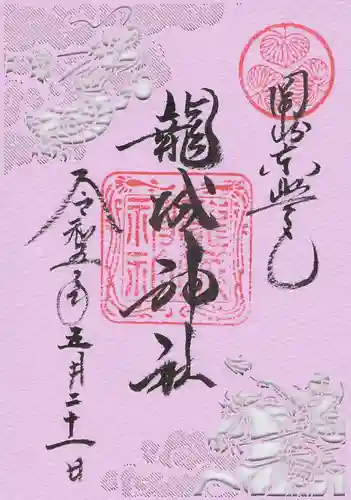 岡崎東照宮
龍城神社
令和五年五月二十一日